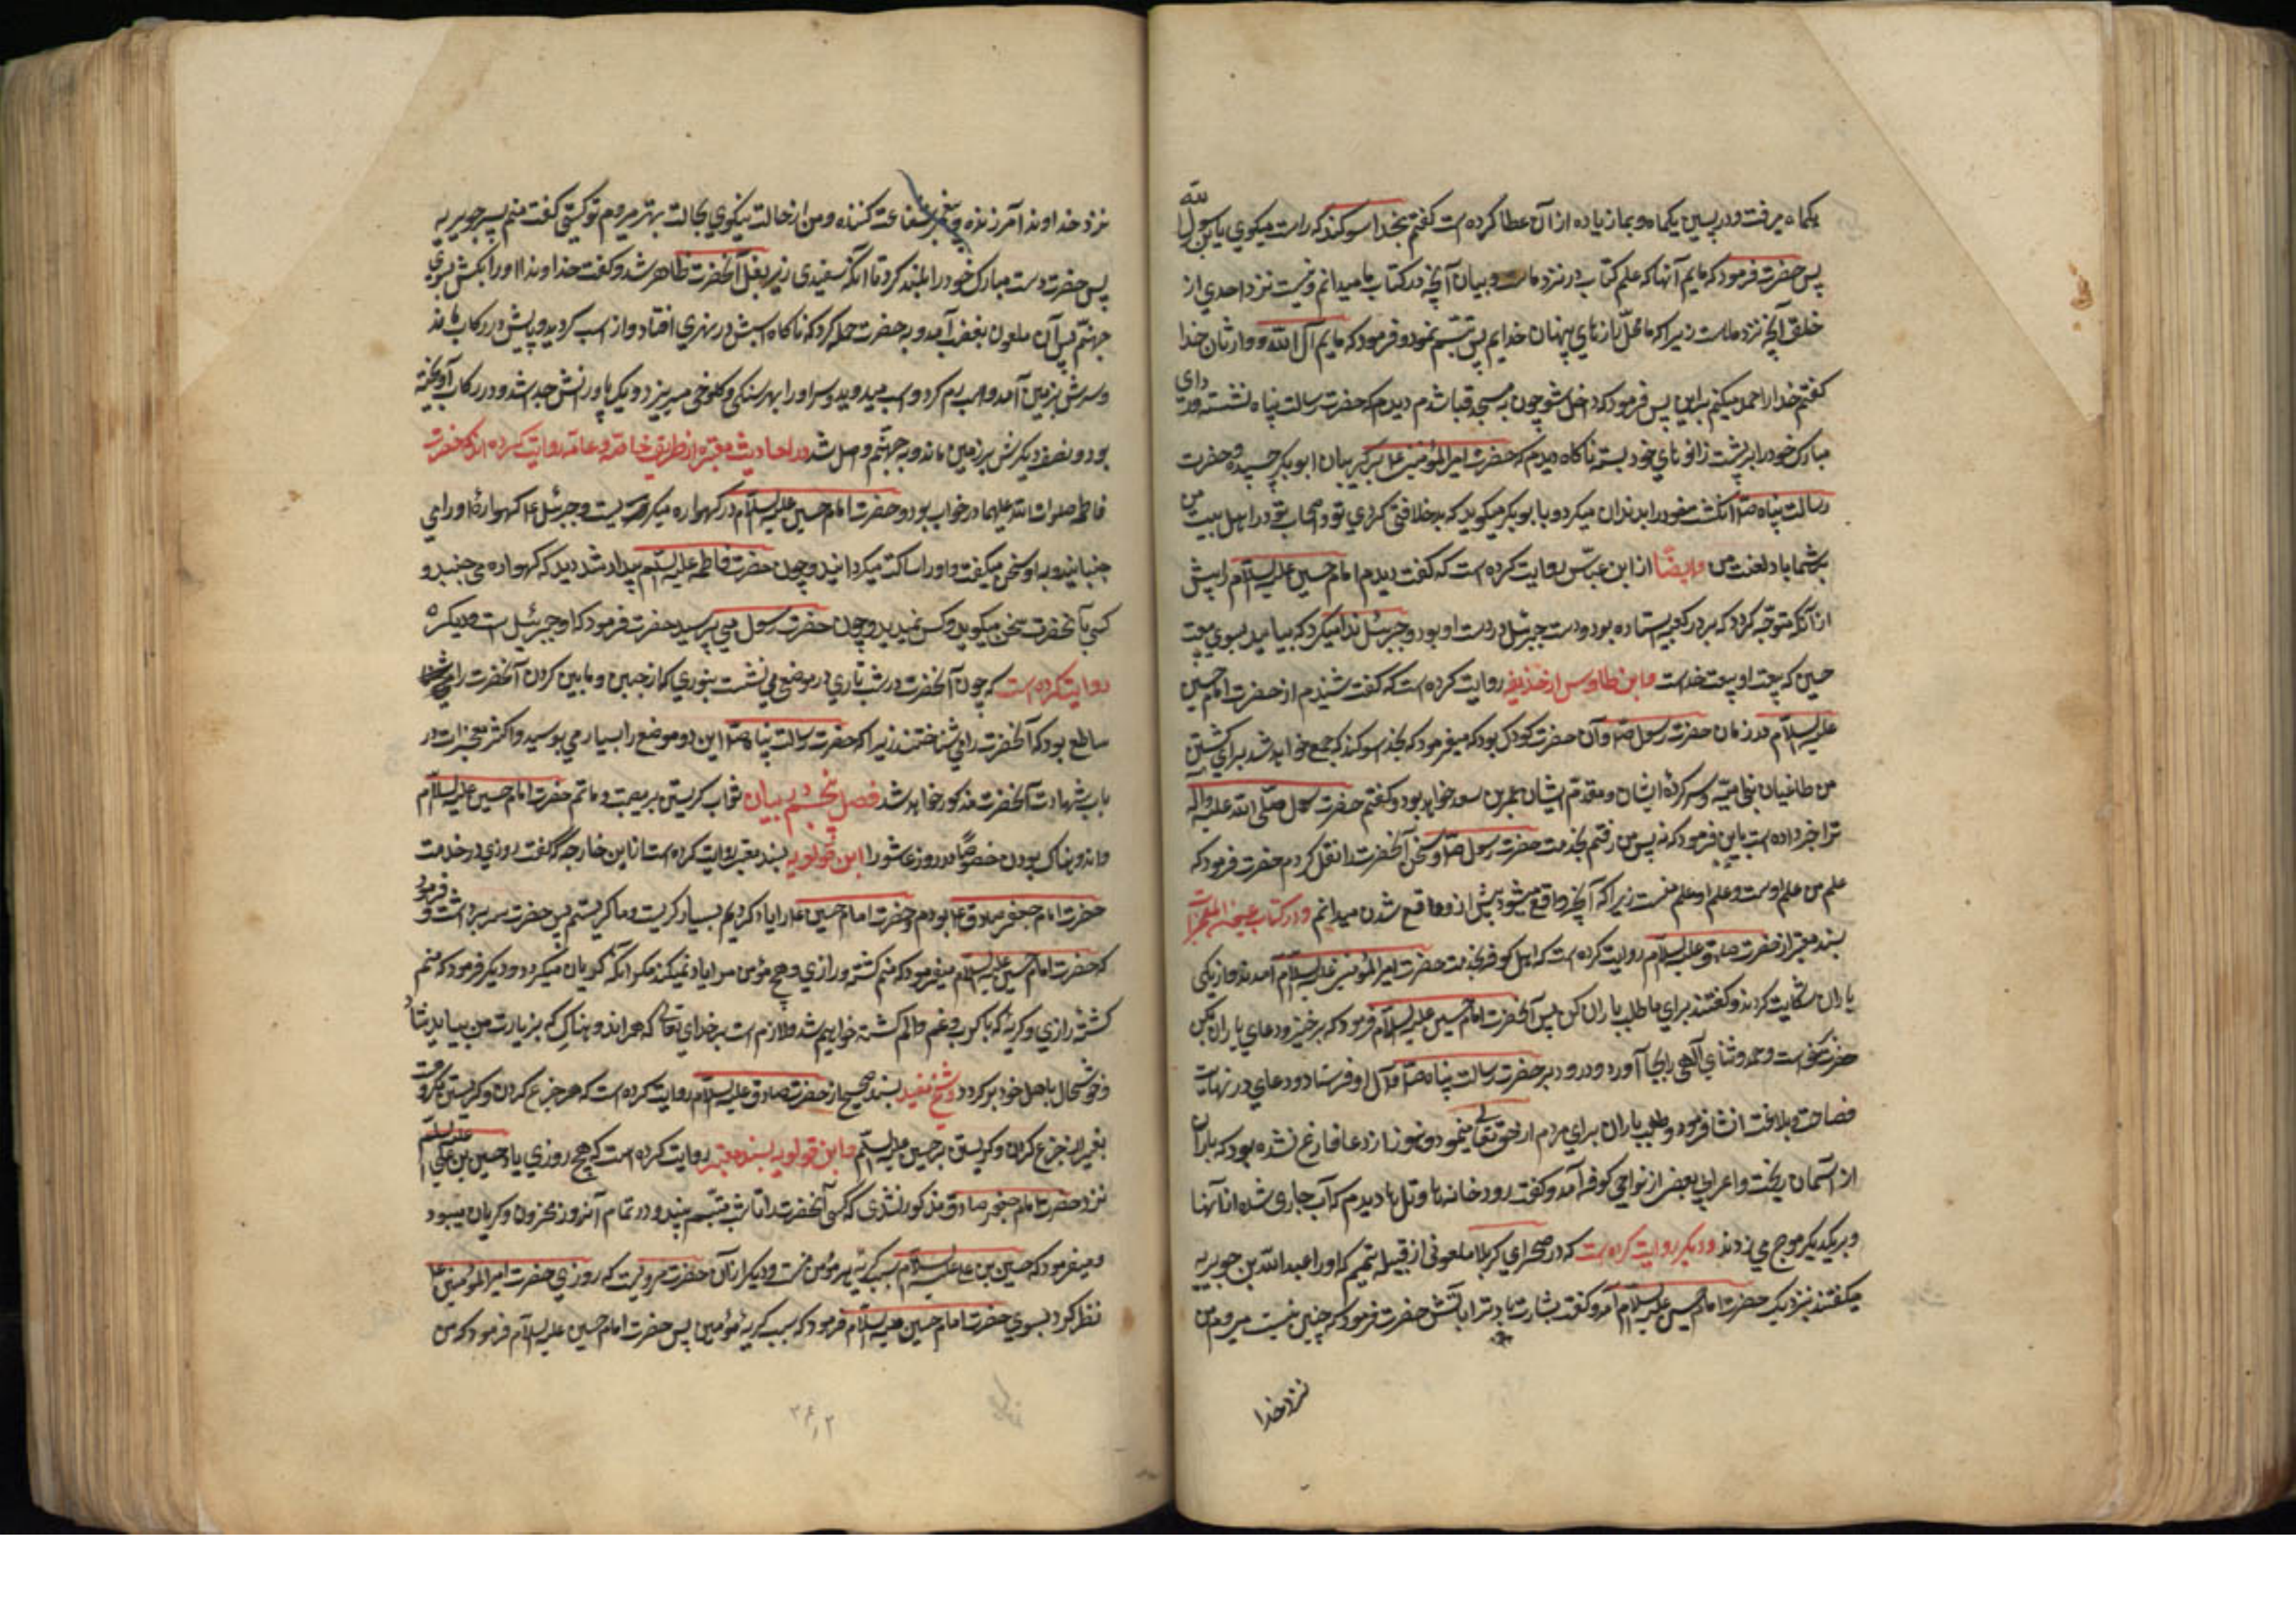 یکماه میرفت و در پسین یکماه و بما زیاده از آن عطا کرده است گفتم بخدا سوکند که راست میکوئی یا بن رسول الله
پس حضرت فرمود که مائیم آنها که علم کتاب در نزد ماست و بیان آنچه در کتابها میدانم و نیست نزد احدی از
خلق آنچه نزد ماست زیرا که ما محل رازهای پنهان خدایم پس تبسم نمود و فرمود که مائیم آل الله و وارثان خدا
کفتم خدا را حمد میکنم براین پس فرمود که داخل شو چون به مسجد قبا شدم دیدم که حضرت رسالت پناه نشسته و ردای
مبارک خود را بر پشت و زانوهای خود بسته ناکاه دیدم که حضرت امیر المؤمنین ع بر کریبان ابوبکر چسبیده و حضرت
رسالت پناه ص انکشت خود را بدندان میکرد و با بوبکر میکوید که بد خلافتی کردی تو و اصحاب تو در اهل بیت من
بر شما باد لعنت من وایضًا از ابن عبّاس روایت کرده است که کفت دیدم امام حسین علیه السلام را پیش
از آنکه متوجّه کردد که بر در کعبه ایستاده بود و دست جبرئیل در دست او بود و جبرئیل ندا میکرد که بیائید بسوی بیعت
حسین که بیعت او بیعت خداست و ابن طاوس از حذیفه روایت کرده است که کفت شنیدم از حضرت امام حسین
علیه السلام در زمان حضرت رسول ص و آن حضرت کودک بود که میفرمود که بخدا سوکند که جمع خواهد شد برای کشتن
من طاغیان بنی امیّه و سرکردهٔ ایشان و مقدّم ایشان عمر بن سعد خواهد بود و کفتم حضرت رسول صلّی الله علیه وآله
ترا خبر داده است باین فرمود که نه پس من رفتم بخدمت حضرت رسول ص و سخن آنحضرت را نقل کردم حضرت فرمود که
علم من علم اوست و علم او علم منست زیرا که آنچه واقع میشود پیش از واقع شدن میدانم و در کتاب عیون المعجزات
بسند معتبر از حضرت صادق علیه السلام روایت کرده است که اهل کوفه بخدمت حضرت امیر المؤمنین علیه السلام آمدند و از نیکی
باران شکایت کردند و کفتند برای ما طلب باران کن پس آنحضرت امام حسین علیه السلام فرمود که برخیز و دعای باران بکن
حضرت برخواست و حمد و ثنای آلهی را بجا آورد و درود بر حضرت رسالت پناه ص و آل او فرستاد و دعای در نهایت
فصاحت و بلاغت انشا فرمود و طلب باران برای مردم از حق تعالی نمود و هنوز از دعا فارغ نشده بود که باران
از آسمان ریخت و اعرابی بعض از نواحی کوفه آمد و کفت رودخانه ها و تل ها دیدم که آب جاری شده از آنها
و بر یکدیکر موج می زدند و دیکر روایت کرده است که در صحرای کربلا ملعونی از قبیله تمیم که او را عبد الله بن جویریه
میکفتند بنزدیک حضرت امام حسین علیه السلام آمد و کفت بشارت باد ترا باتش حضرت فرمود که چنین نیست میروم من
نزد خدا
نزد خداوند آمرزنده و پیغمبر شفاعت کننده و من از حالت نیکوی بحالت بهتر میروم تو کیستی کفت منم پسر جویریه
پس حضرت دست مبارک خود را بلند کرد تا آنکه سفیدی زیر بغل آنحضرت ظاهر شد و کفت خداوندا او را بکش بسوی
جهنّم پس آن ملعون بغضب آمد و به حضرت حمله کرد که ناکاه اسبش در نهری افتاد و از اسب کردید و پایش در رکاب ماند
و سرش بر زمین آمد و اسب رم کرد و اسب میدوید و سر او را بهر سنکی و کلوخی میزد و یک پا و رانش جدا شد و در رکاب آویخته
بود و نصف دیکرش بر زمین ماند و به جهنّم واصل شد در احادیث معتبره از طریق خاصّه و عامّه روایت کرده اند که حضرت
فاطمه صلوات الله علیها در خواب بود و حضرت امام حسین علیه السلام در کهواره میکریست و جبرئیل ع کهوارهٔ او را می
جنبانید و با او سخن میکفت و او را ساکت میکردانید و چون حضرت فاطمه علیه السلم بیدار شد دید که کهواره می جنبد و
کسی با آنحضرت سخن میکوید و کس نمیدید و چون حضرت رسول می پرسید حضرت فرمود که او جبرئیل است و دیکر
روایت کرده است که چون آنحضرت در شب تاری در موضع می نشست بنوری که از جبین و مابین کردن آنحضرت
ساطع بود که آنحضرت را می شناختند زیرا که حضرت رسالت پناه ص این دو موضع را بسیار می بوسید و اکثر معجزات در
باب شهادت آنحضرت مذکور خواهد شد فصل پنجم در بیان ثواب کریستن بر مصیبت و ماتم حضرت امام حسین علیه السلام
و اندوهناک بودن خصوصًا در روز عاشورا ابن قولویه بسند معتبر روایت کرده است از ابن خارجه که کفت روزی در خدمت
حضرت امام جعفر صادق ع بودم و حضرت امام حسین ع را یاد کردیم بسیار کریست و ما کریستیم پس حضرت سر برداشت و فرمود
که حضرت امام حسین علیه السلام میفرمود که منم کشته و زاری و هیچ مؤمن مرا یاد نمیکند مکر آنکه کریان میکردد و دیکر فرمود که منم
کشتهٔ زاری و کریه که با کرب و غم و الم کشته خواهیم شد و لازم است بر خدای تعالی که هر اندوهناکی که بزیارت من بیاید شاد
و خوشحال باهل خود برکردد و شیخ مفید بسند صحیح از حضرت صادق علیه السلام روایت کرده است که هر جزع کردن و کریستن مکروهست
بغیر از جزع کردن و کریستن بر حسین علیه السلم و ابن قولویه بسند معتبر روایت کرده است که هیچ روزی یاد حسین بن علی علیه السلم
نزد حضرت امام جعفر صادق مذکور نشدی که کسی آنحضرت را تا شب متبسّم بیند و در تمام آنروز محزون و کریان میبود
و میفرمود که حسین بن علی علیه السلام سبب کریه هر مؤمن است و دیکر از آن حضرت مرویست که روزی حضرت امیر المؤمنین ع
نظر کرد بسوی حضرت امام حسین علیه السلام فرمود که سبب کریهٔ مؤمنین پس حضرت امام حسین علیه السلام فرمود که من